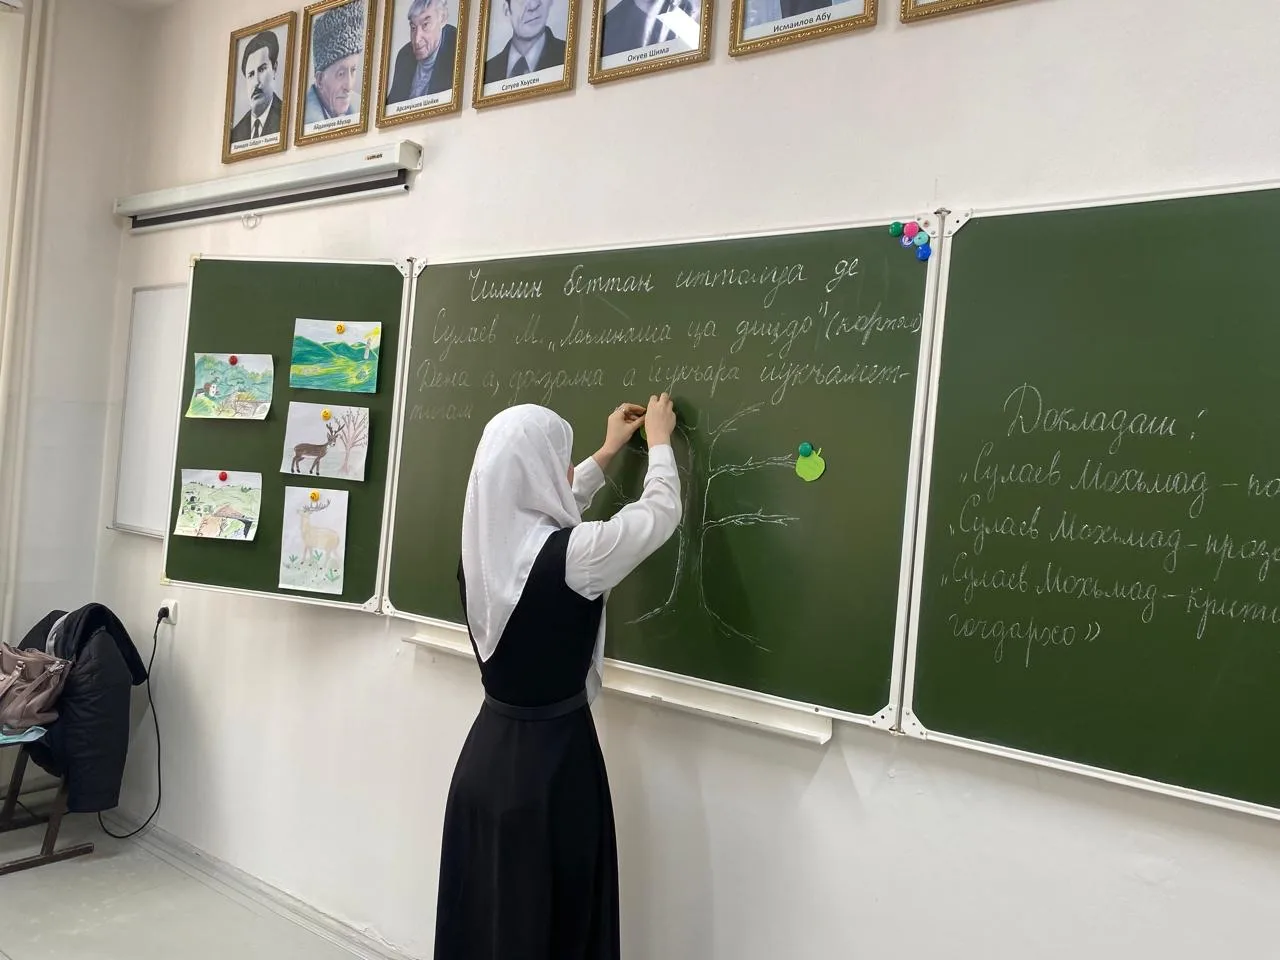 Хамидов Iабдул-Хьамид
Айдамиров Абузар
Арсанукаев Шайхи
Сатуев Хьусен
Окуев Шима
Исмаилов Абу
Чиллин беттан итталгIа де
Сулаев М. „Лаьмнаша ца дицдо" (
Дена а, доьзална а юкъара юкъамет-
тигаш
Докладаш:
„Сулаев Мохьмад – по
„Сулаев Мохьмад – проза
„Сулаев Мохьмад – крити
гочдархо»